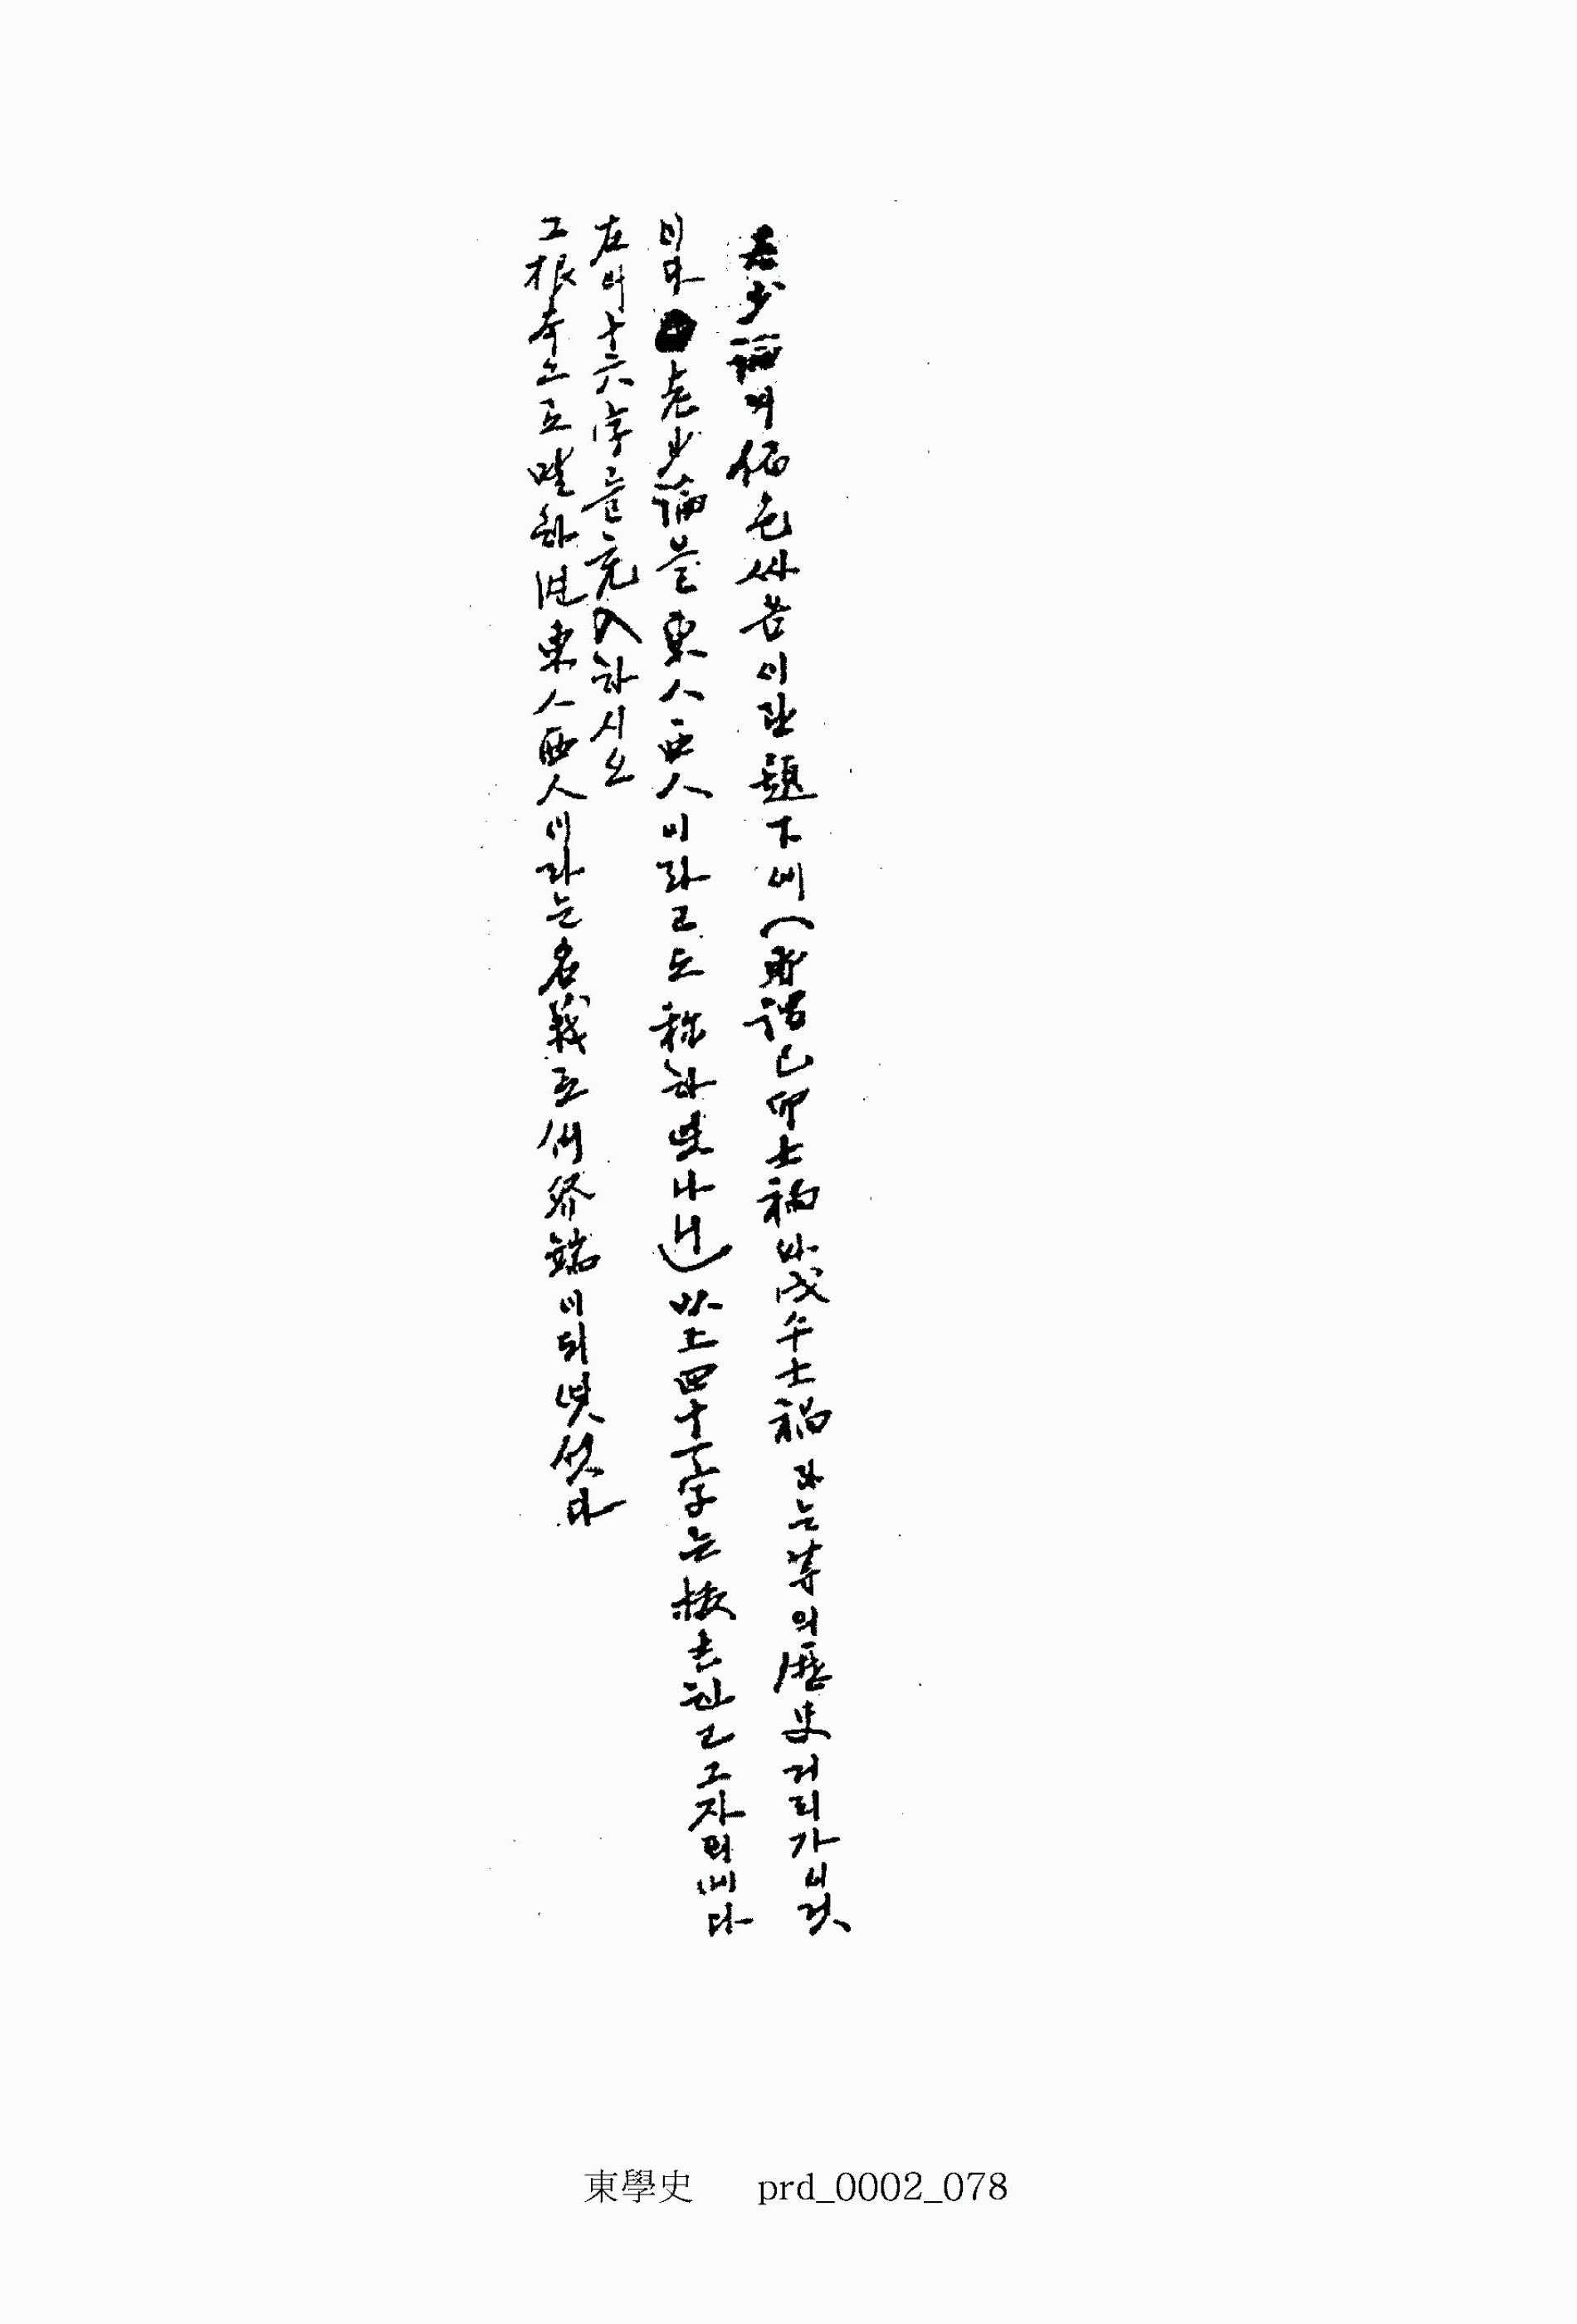 老少論의 偏色싸홈이란 題下에 (所謂 己卯士禍와 戊午士禍라는 等의 歷史거리가 니것
이다 老少論을 東人西人이라고도 称하엿나니) 以上四十一字는 抜去한고 그 자리에다
左의 十六字를 充入하시오
그 根本으로 말하면 東人西人이라는 名義로
이 되엿섯다
東學史 prd_0002_078